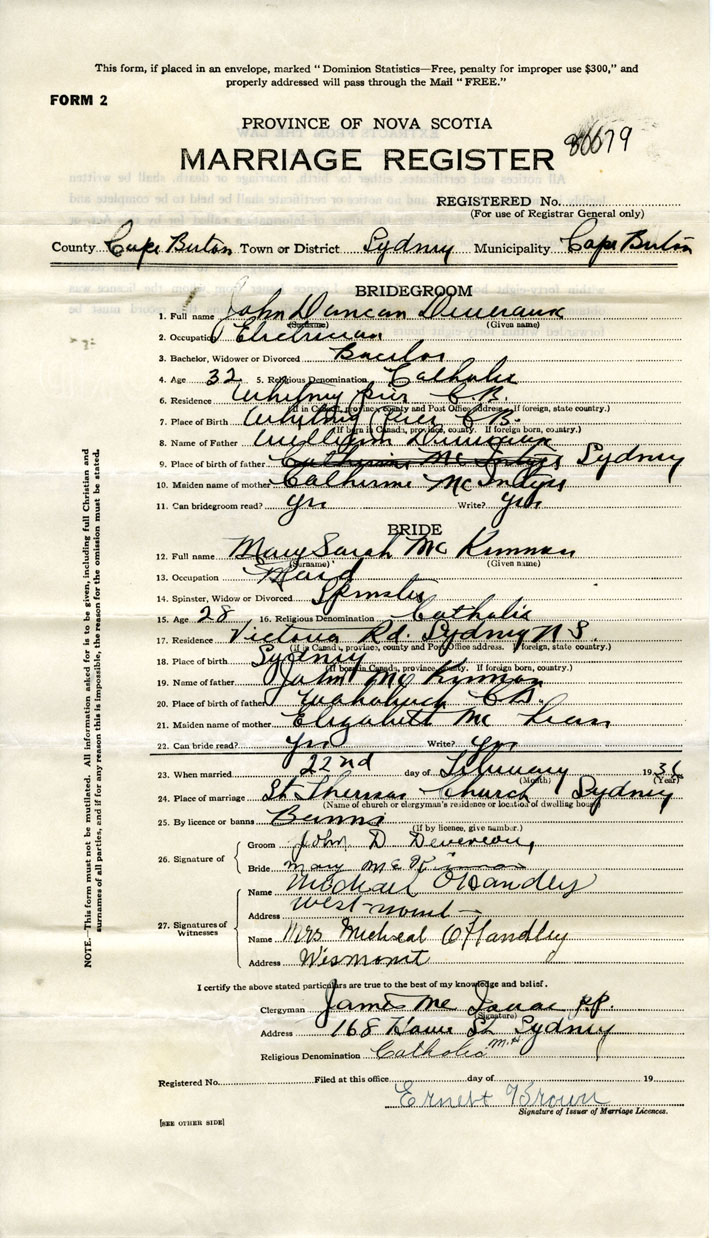 This form, if placed in an envelope, marked "Dominion Statistics—Free, penalty for improper use $300," and
properly addressed will pass through the Mail "FREE."
FORM 2
PROVINCE OF NOVA SCOTIA
MARRIAGE REGISTER
REGISTERED No.
(For use of Registrar General only)
County Cape Breton Town or District Sydney Municipality Cape Breton
BRIDEGROOM
1. Full name John Duncan Devereaux
(Surname) (Given name)
2. Occupation
3. Bachelor, Widower or Divorced
4. Age 32 5. Religious Denomination Catholic
6. Residence Whitney Pier C.B.
(If in Canada, province, county and Post Office address. If foreign, state country.)
7. Place of Birth Whitney Pier C B
(If born in Canada, province, county. If foreign born, country.)
8. Name of Father William Devereaux
9. Place of birth of father Catherine McIntyre Sydney
10. Maiden name of mother Catherine McIntyre
11. Can bridegroom read? yes Write? yes
BRIDE
12. Full name Mary Sarah McKinnon
(Surname) (Given name)
13. Occupation Maid
14. Spinster, Widow or Divorced Spinster
15. Age 28 16. Religious Denomination Catholic
17. Residence Victoria Rd. Sydney N S.
(If in Canada, province, county and Post Office address. If foreign, state country.)
18. Place of birth Sydney
(If born in Canada, province, county. If foreign born, country.)
19. Name of father John McKinnon
20. Place of birth of father C B.
21. Maiden name of mother Elizabeth McLean
22. Can bride read? yes Write? yes
23. When married 22nd day of February 1936
(Month) (Year)
24. Place of marriage St Theresas Church Sydney
(Name of church or clergyman's residence or location of dwelling house)
25. By licence or banns Banns
(If by licence, give number.)
26. Signature of
Groom John D Devereaux
Bride Mary McKinnon
27. Signatures of Witnesses
Name Michael O'Handley
Address Westmount
Name Mrs Micheal O'Handley
Address Wesmont
I certify the above stated particulars are true to the best of my knowledge and belief.
Clergyman James P.P.
(Signature)
Address 168 St Sydney
Religious Denomination Catholic
Registered No. Filed at this office day of 19
Ernest Brown
Signature of Issuer of Marriage Licences.
[SEE OTHER SIDE]
NOTE.—This form must not be mutilated. All information asked for is to be given, including full Christian and
surnames of all parties, and if for any reason this is impossible, the reason for the omission must be stated.